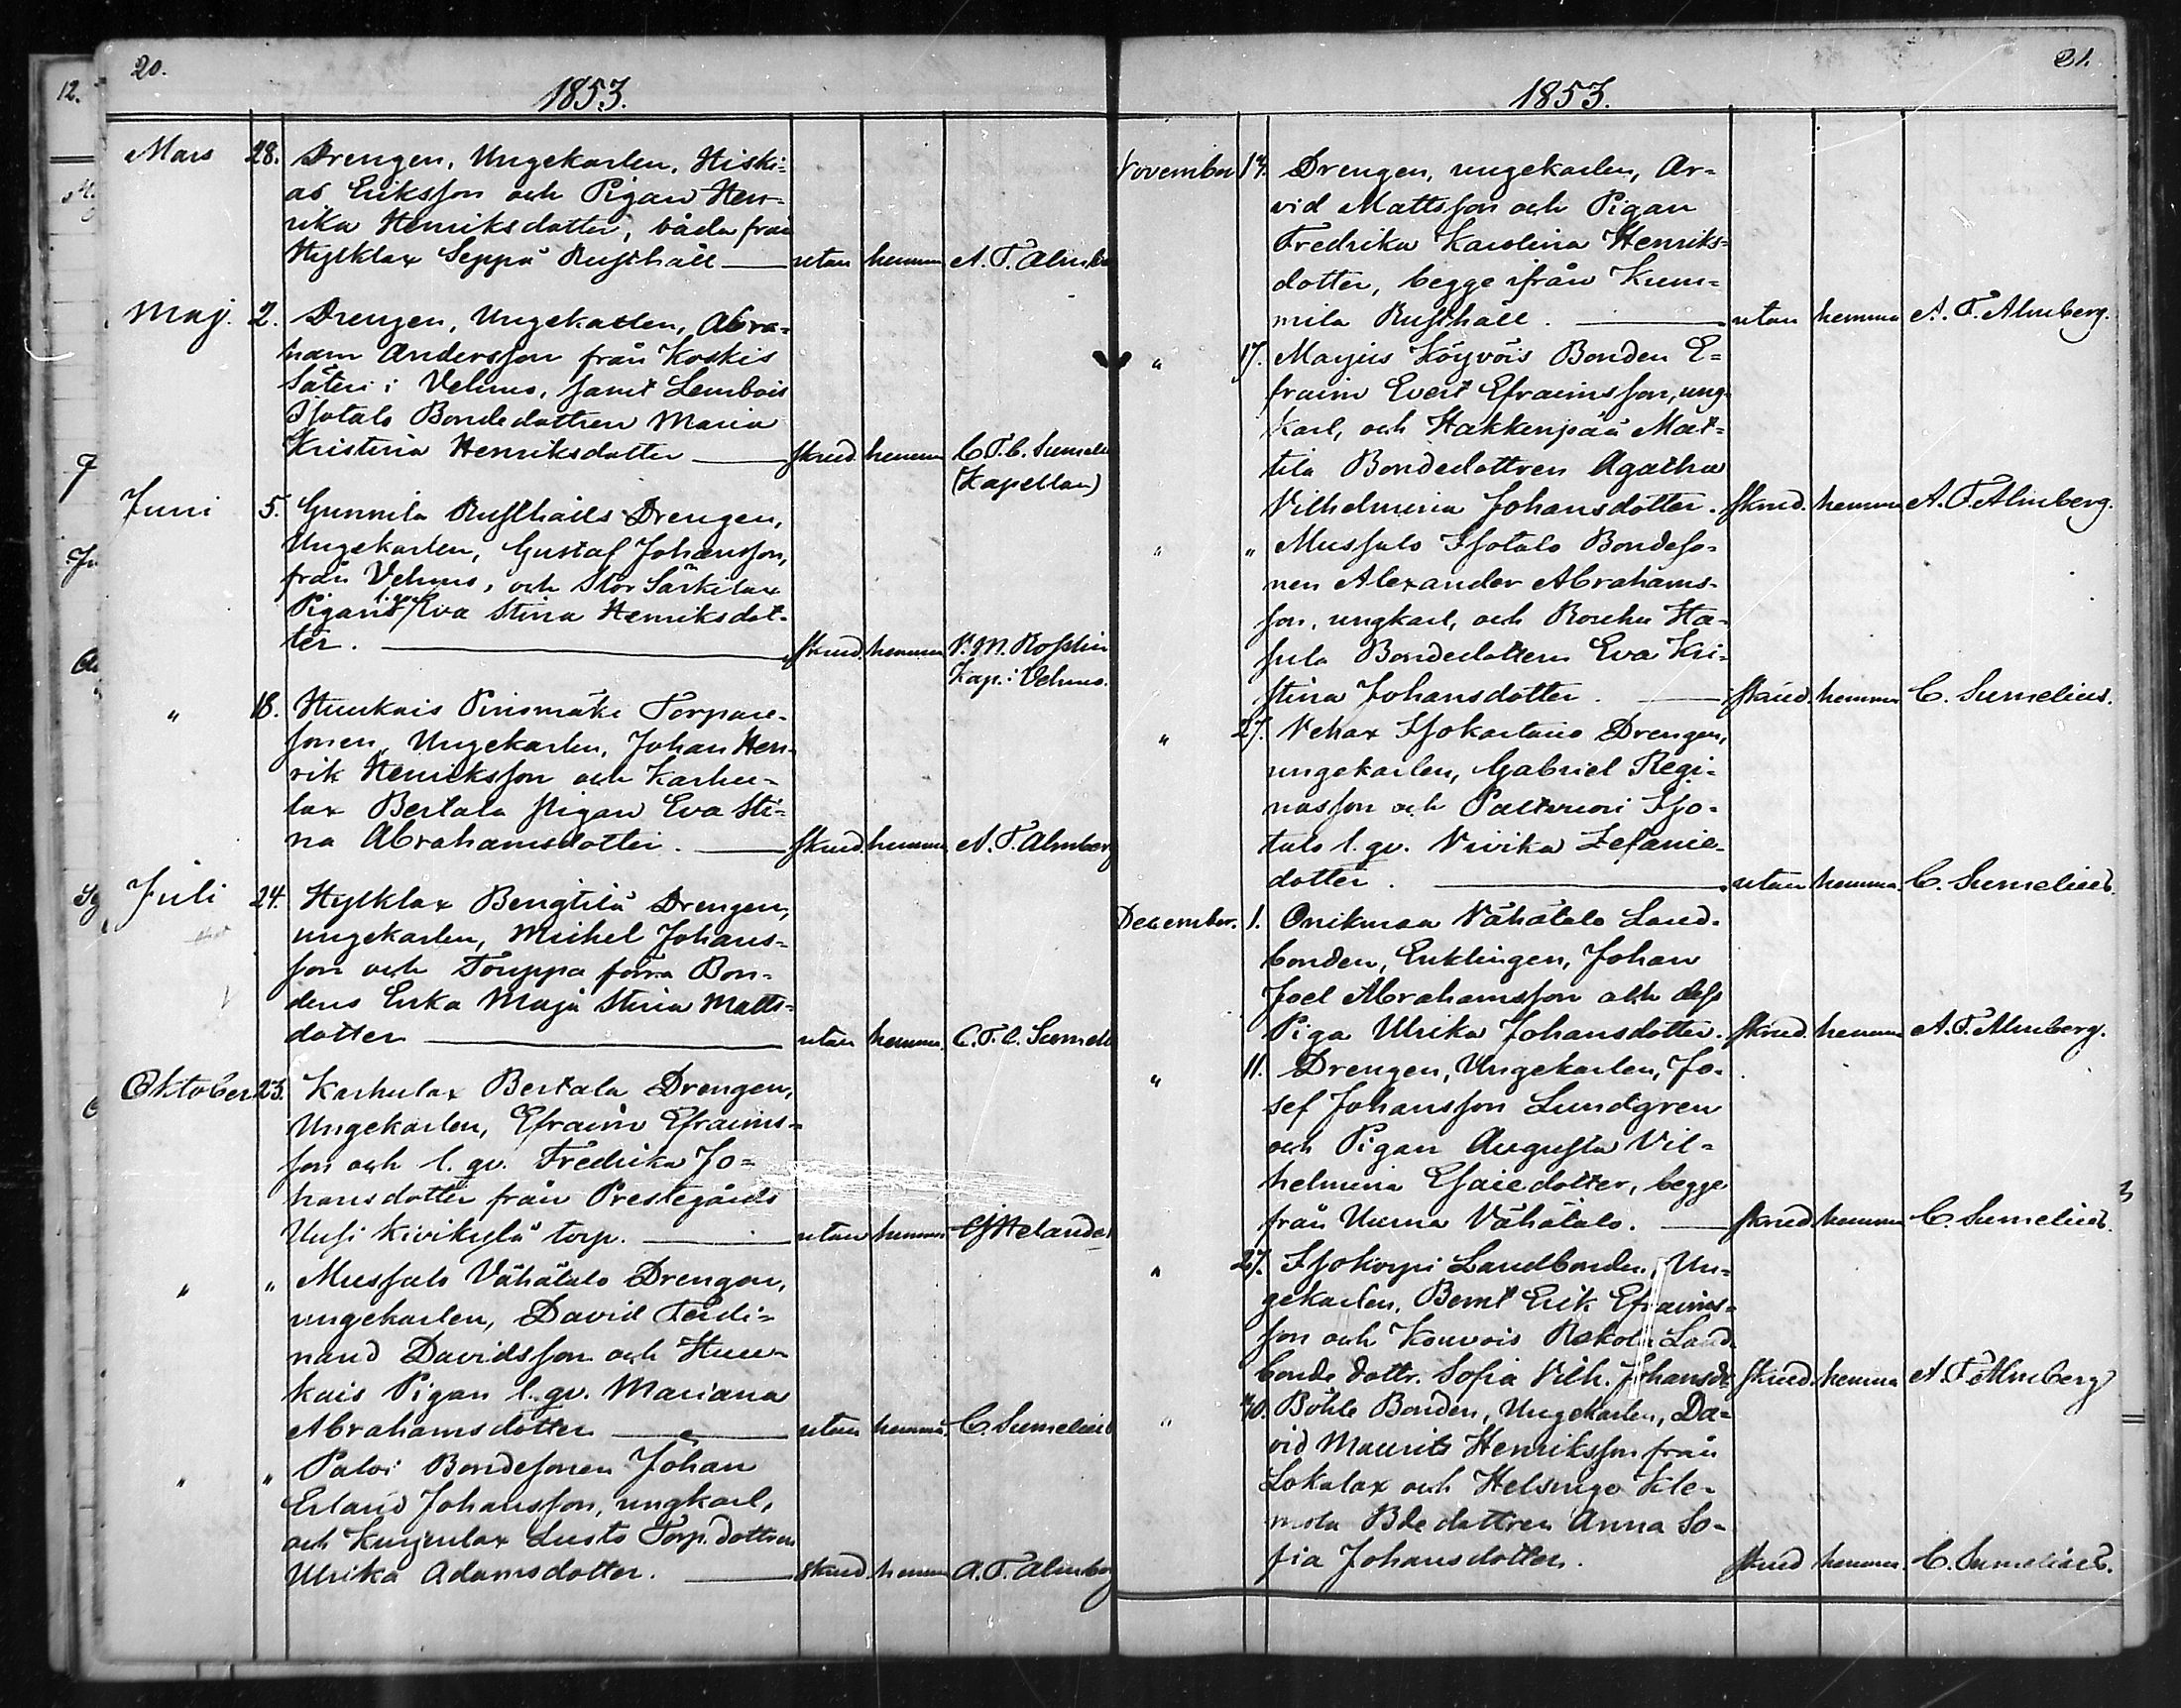 20.
1853.
Mars 28. Drengen, Ungekarlen, Hiski-
as Eriksson och Pigan Hen-
rika Henriksdotter, båda från
Hylklax Seppä Rusthåll — utan hemma A. F. Almb
Maj. 2. Drengen, Ungekarlen, Abra-
ham Andersson från Koskis
Säteri i Vehmo, samt Lembois
Isotalo Bondedottren Maria
Kristina Henriksdotter — skrud. hemma C. F. C. Sumeli
(Kapellan)
Juni 5. Gunnila Rusthålls Drengen,
Ungekarlen, Gustaf Johansson,
från Vehmo, och Stor Särkilax
Pigans Eva Stina Henriksdot-
ter. — skrud. hemma V. M. Rosslin
Kap. i Vehmo.
" 18. Huukais Pirismäki Torpare-
sonen, Ungekarlen, Johan Hen-
rik Henriksson och Karhu-
lax Bertala pigan Eva Sti-
na Abrahamsdotter. — skrud. hemma A. F. Almberg
Juli 24. Hylklax Bengtilä Drengen,
ungekarlen, Michel Johans-
son och Touppa förra Bon-
dens Enka Maja Stina Matts-
dotter — utan hemma. C. F. C. Sumeli
Oktober 23. Karhulax Bertala Drengen,
Ungekarlen, Efraim Efraims-
son och l. qv. Fredrika Jo-
hansdotter från Prestegårds
Uusi Kivikylä torp. — utan hemma Helander
" " Mussalo Vähätalo Drengen,
ungekarlen, David Ferdi-
nand Davidsson och Huu-
kais Pigan l. qv. Mariana
Abrahamsdotter — utan hemma. C. Sumelius
" " Palvi Bondesonen Johan
Erland Johansson, ungkarl,
och Kurjenlax Lusto Torp.dottren
Ulrika Adamsdotter. — skrud. hemma A. F. Almberg
21.
1853.
November 14. Drengen, ungekarlen, Ar-
vid Mattsson och Pigan
Fredrika Karolina Henriks-
dotter, begge ifrån Kum-
mila Rusthåll. — utan hemma A. F. Almberg.
" 17. Marjus Köyvöis Bonden E-
fraim Evert Efraimsson, ung-
karl, och Hakkenpää Mat-
tila Bondedottren Agatha
Vilhelmina Johansdotter. skrud. hemma A. F. Almberg.
" " Mussalo Isotalo Bondeso-
nen Alexander Abrahams-
son, ungkarl, och Rouhu Ha-
sula Bondedottern Eva Kri-
stina Johansdotter. — skrud. hemma C. Sumelius.
" 27. Vehax Isokartano Drengen,
ungekarlen, Gabriel Regi-
nasson och Paltvuori Iso-
talo l. qv. Vivika Zefanie-
dotter. — utan hemma. C. Sumelius.
December. 1. Onikmaa Vähätalo Land-
bonden, Enklingen, Johan
Joel Abrahamsson och dess
Piga Ulrika Johansdotter. skrud. hemma A. F. Almberg.
" 11. Drengen, Ungekarlen, Jo-
sef Johansson Lundgren
och Pigan Augusta Vil-
helmina Esaiedotter, begge
från Vähätalo. — skrud hemma C. Sumelius.
" 27. Isokorpi Landbonden, Un-
gekarlen, Bernt Erik Efraims-
son och Kouvois Rakola Land-
bonde dottr. Sofia Vilh. Johansdr skrud. hemma A. F. Almberg
" 30. Böhle Bonden, Ungekarlen, Da-
vid Maurits Henriksson från
Lokalax och Helsinge Kle-
mola Bde dottren Anna So-
fia Johansdotter. skrud hemma. C. Sumelius.